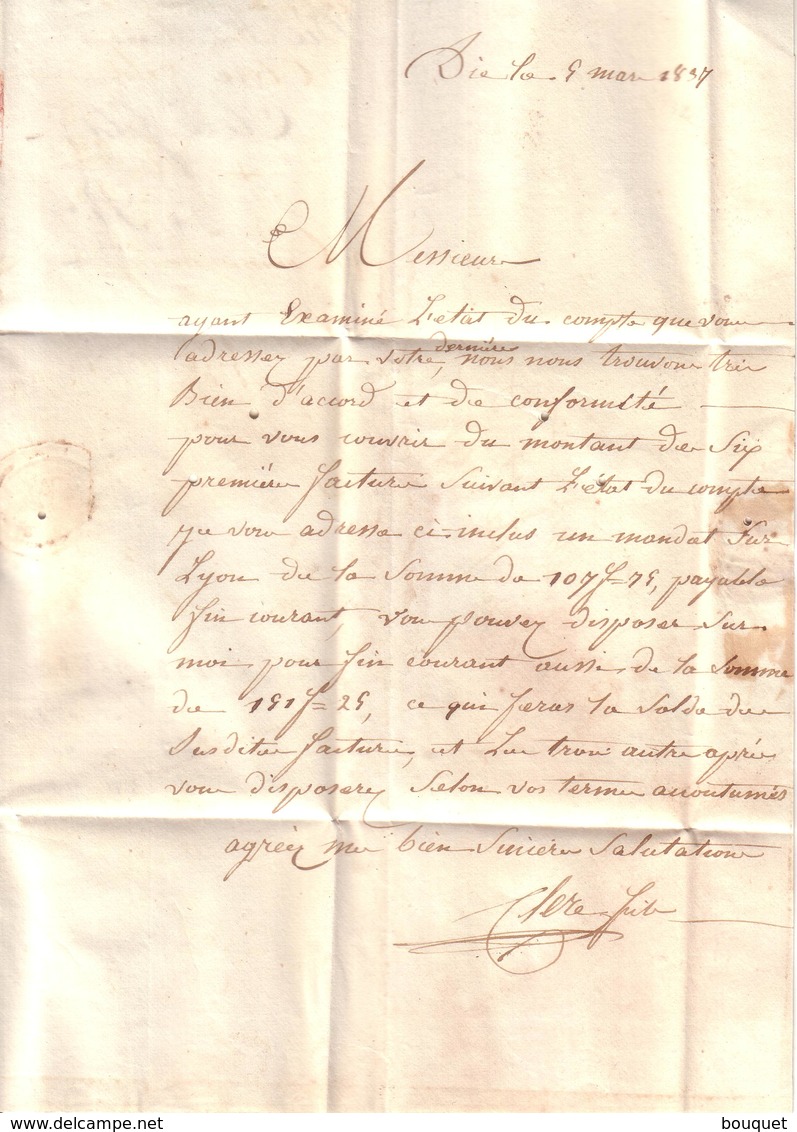 Die le 5 mars 1837
Messieurs
ayant Examiné L'etat du compte que vous
adressez par votre dernière, nous nous trouvons très
Bien d'accord et de conformité
pour vous couvrir du montant de Six
première facture Suivant L'état du compte
je vous adresse ci inclus un mandat Sur
Lyon de la Somme de 107f=75, payable
fin courant, vous pouvez disposer Sur
moi pour fin courant aussi de la Somme
de 151f=25, ce qui feras le Solde des
Susdites facture, et Les trois autre après
vous disposerez Selon vos termes accoutumés
agréez mes bien Sincère Salutations
fils
bouquet